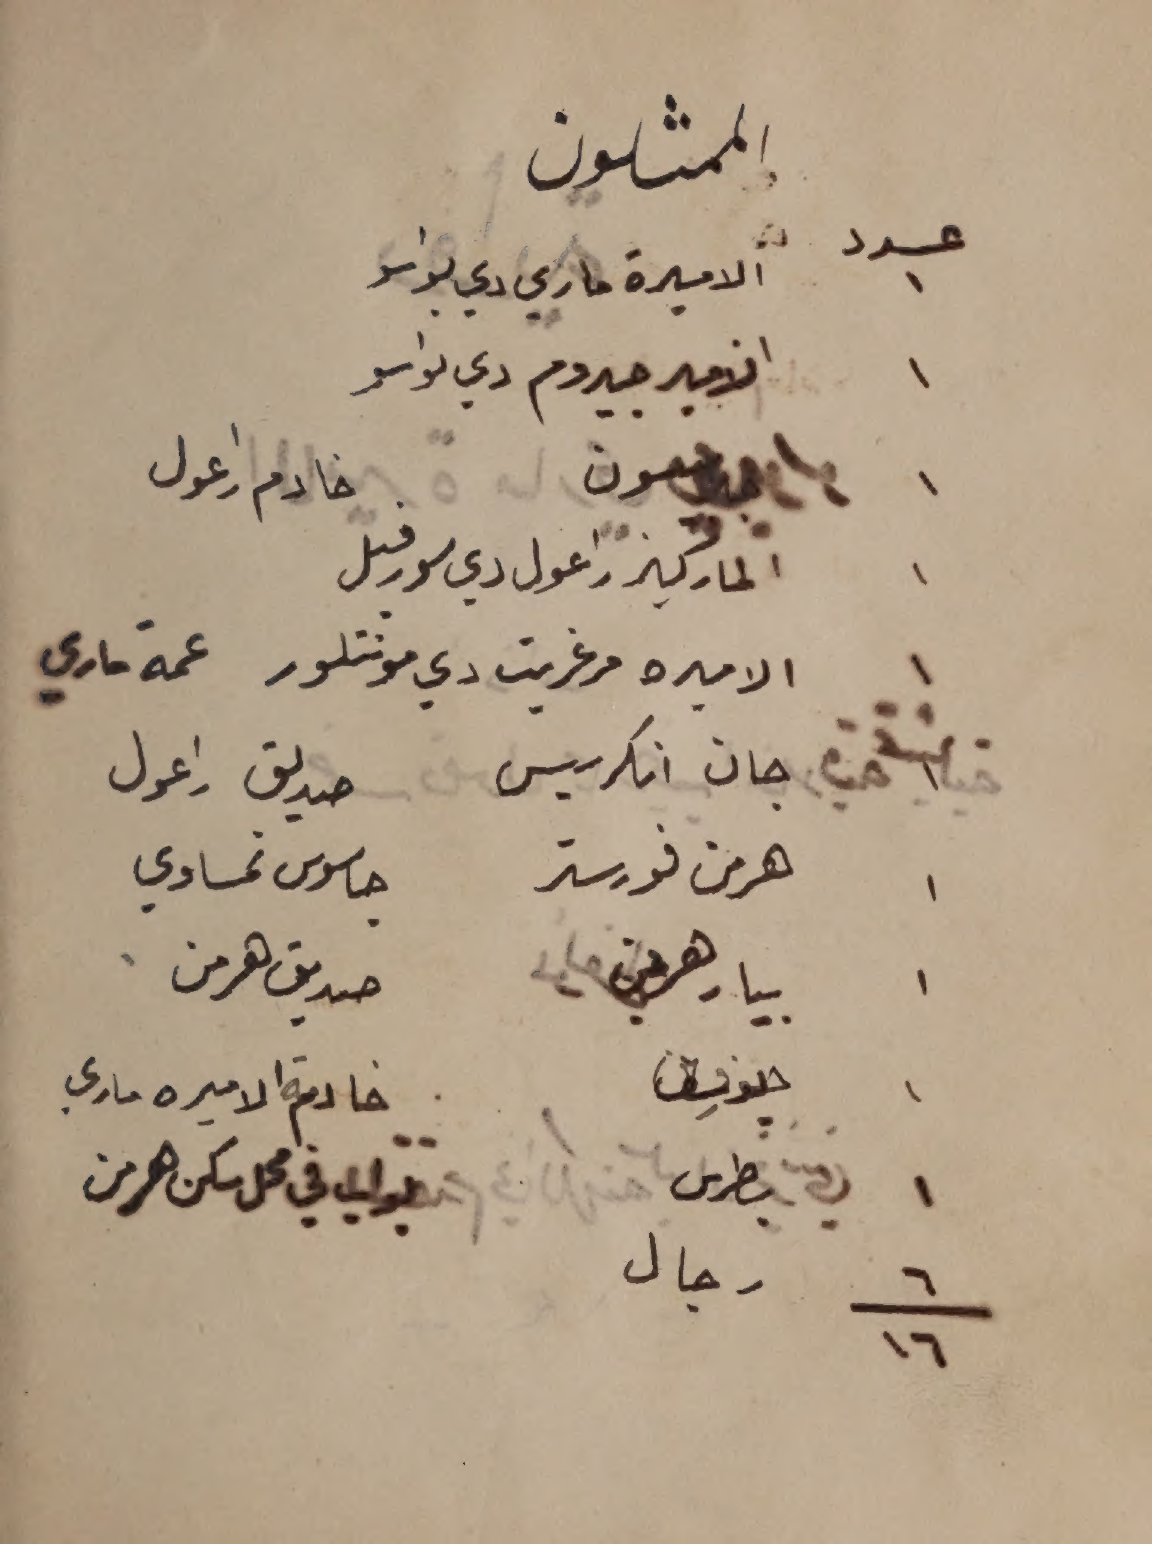 الممثلون
عدد
١ الاميرة ماري دي بواسو
١ الامير جيروم دي بواسو
١ خادم راعول
١ الماركيز راعول دي سورفيل
١ الاميره مرغريت دي مونتلور عمة ماري
١ جان انكرريس صديق راعول
١ هرمن فورستر جاسوس نمساوي
١ بيار صديق هرمن
١ خادمة الاميره ماري
١ بطرس بواب في محل سكن هرمن
٦ رجال
١٦